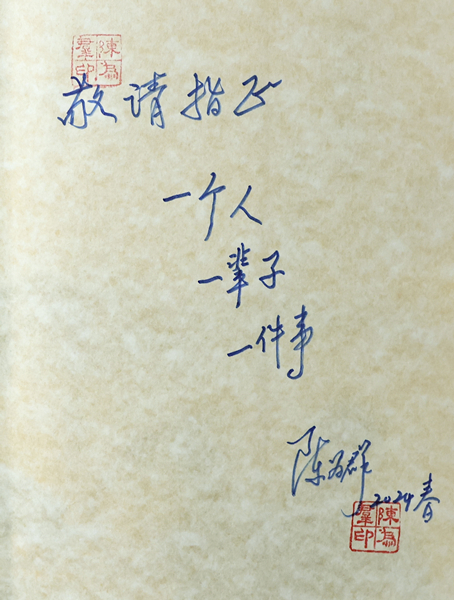 陳為羣印
敬请指正
一个人
一辈子
一件事
陈为群
2024春
陳為羣印